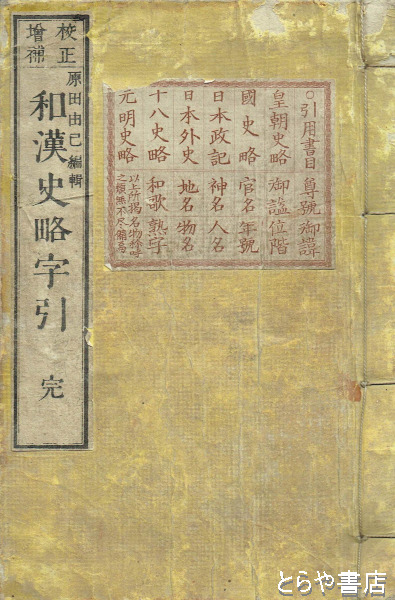 校正
増補
原田由己編輯
和漢史略字引 完
○引用書目 尊號御諱
皇朝史略 御諡位階
國史略 官名年號
日本政記 神名人名
日本外史 地名物名
十八史略 和歌熟字
元明史略
以上所揭名物稱呼
之類無不尽備焉
とらや書店